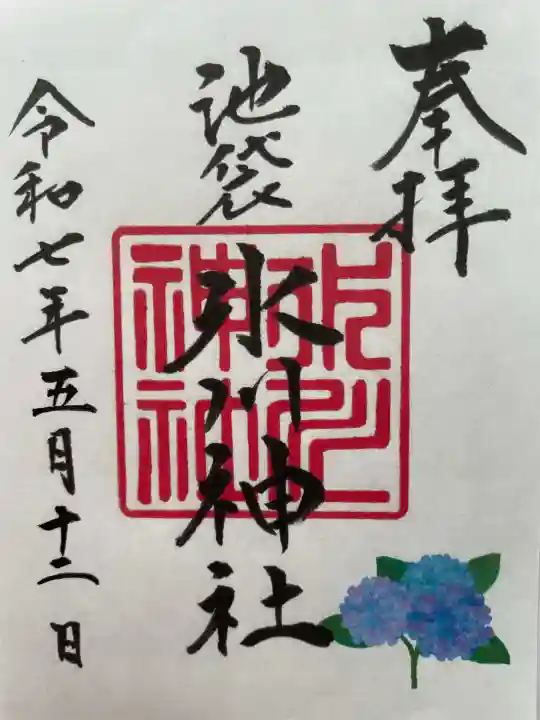 奉拝
池袋
氷川神社
氷川
神社
令和七年五月十二日